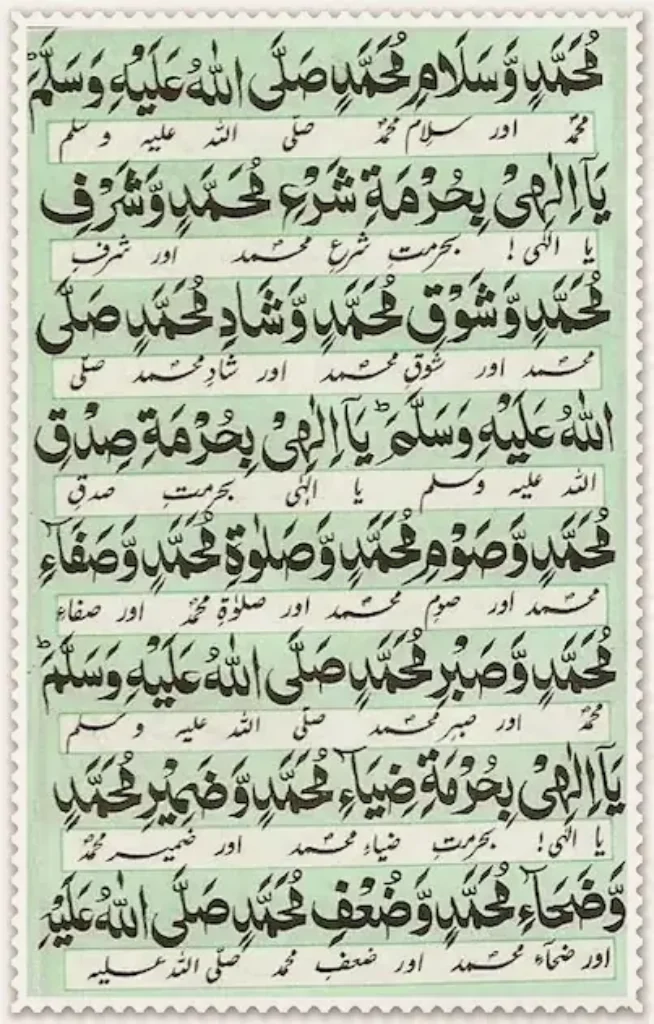 مُحَمَّدٍ وَّسَلَامِ مُحَمَّدٍ صَلَّى اللهُ عَلَيْهِ وَسَلَّمَ ط
محمدؐ اور سلامِ محمدؐ صلّی اللہ علیہ وسلم
يَآ اِلٰهِيْ بِحُرْمَةِ شَرْعِ مُحَمَّدٍ وَّشَرْفِ
یا الٰہی! بحرمتِ شرعِ محمدؐ اور شرفِ
مُحَمَّدٍ وَّشَوْقِ مُحَمَّدٍ وَّشَادِ مُحَمَّدٍ صَلَّى
محمدؐ اور شوقِ محمدؐ اور شادِ محمدؐ صلّی
اللهُ عَلَيْهِ وَسَلَّمَ ط يَآ اِلٰهِيْ بِحُرْمَةِ صِدْقِ
اللہ علیہ وسلم یا الٰہی بحرمتِ صدقِ
مُحَمَّدٍ وَّصَوْمِ مُحَمَّدٍ وَّصَلٰوةِ مُحَمَّدٍ وَّصَفَآءِ
محمدؐ اور صومِ محمدؐ اور صلوٰۃِ محمدؐ اور صفاءِ
مُحَمَّدٍ وَّصَبْرِ مُحَمَّدٍ صَلَّى اللهُ عَلَيْهِ وَسَلَّمَ ط
محمدؐ اور صبرِ محمدؐ صلّی اللہ علیہ وسلم
يَآ اِلٰهِيْ بِحُرْمَةِ ضِيَآءِ مُحَمَّدٍ وَّضَمِيْرِ مُحَمَّدٍ
یا الٰہی! بحرمتِ ضیاءِ محمدؐ اور ضمیرِ محمدؐ
وَّضَحَآءِ مُحَمَّدٍ وَّضُعْفِ مُحَمَّدٍ صَلَّى اللهُ عَلَيْهِ
اور ضحآءِ محمدؐ اور ضعفِ محمدؐ صلّی اللہ علیہ